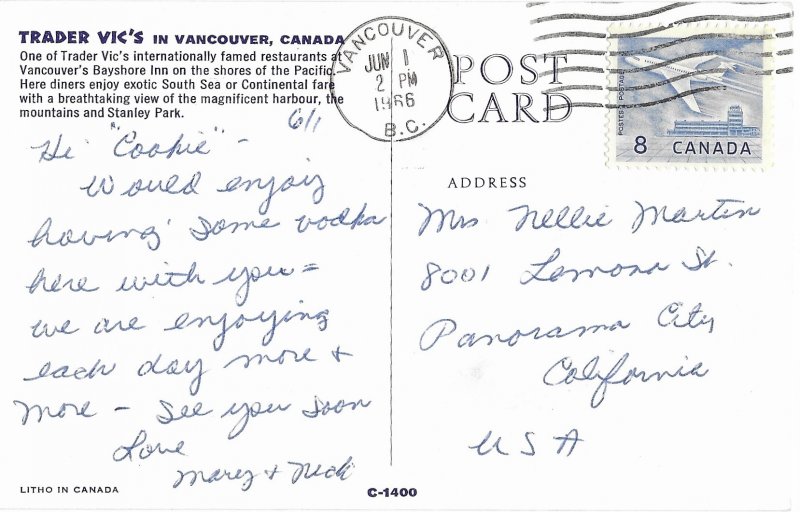 TRADER VIC'S IN VANCOUVER, CANADA
One of Trader Vic's internationally famed restaurants at
Vancouver's Bayshore Inn on the shores of the Pacific.
Here diners enjoy exotic South Sea or Continental fare
with a breathtaking view of the magnificent harbour, the
mountains and Stanley Park.
6/1
Hi "Cookie" -
Would enjoy
having some vodka
here with you =
we are enjoying
each day more +
more - See you soon
Love
Mary + Nick
LITHO IN CANADA
C-1400
VANCOUVER
JUN 1
2 PM
1966
B.C.
POST
CARD
POSTES POSTAGE
8 CANADA
ADDRESS
Mrs Nellie Martin
8001 Lemona St.
Panorama City
California
USA